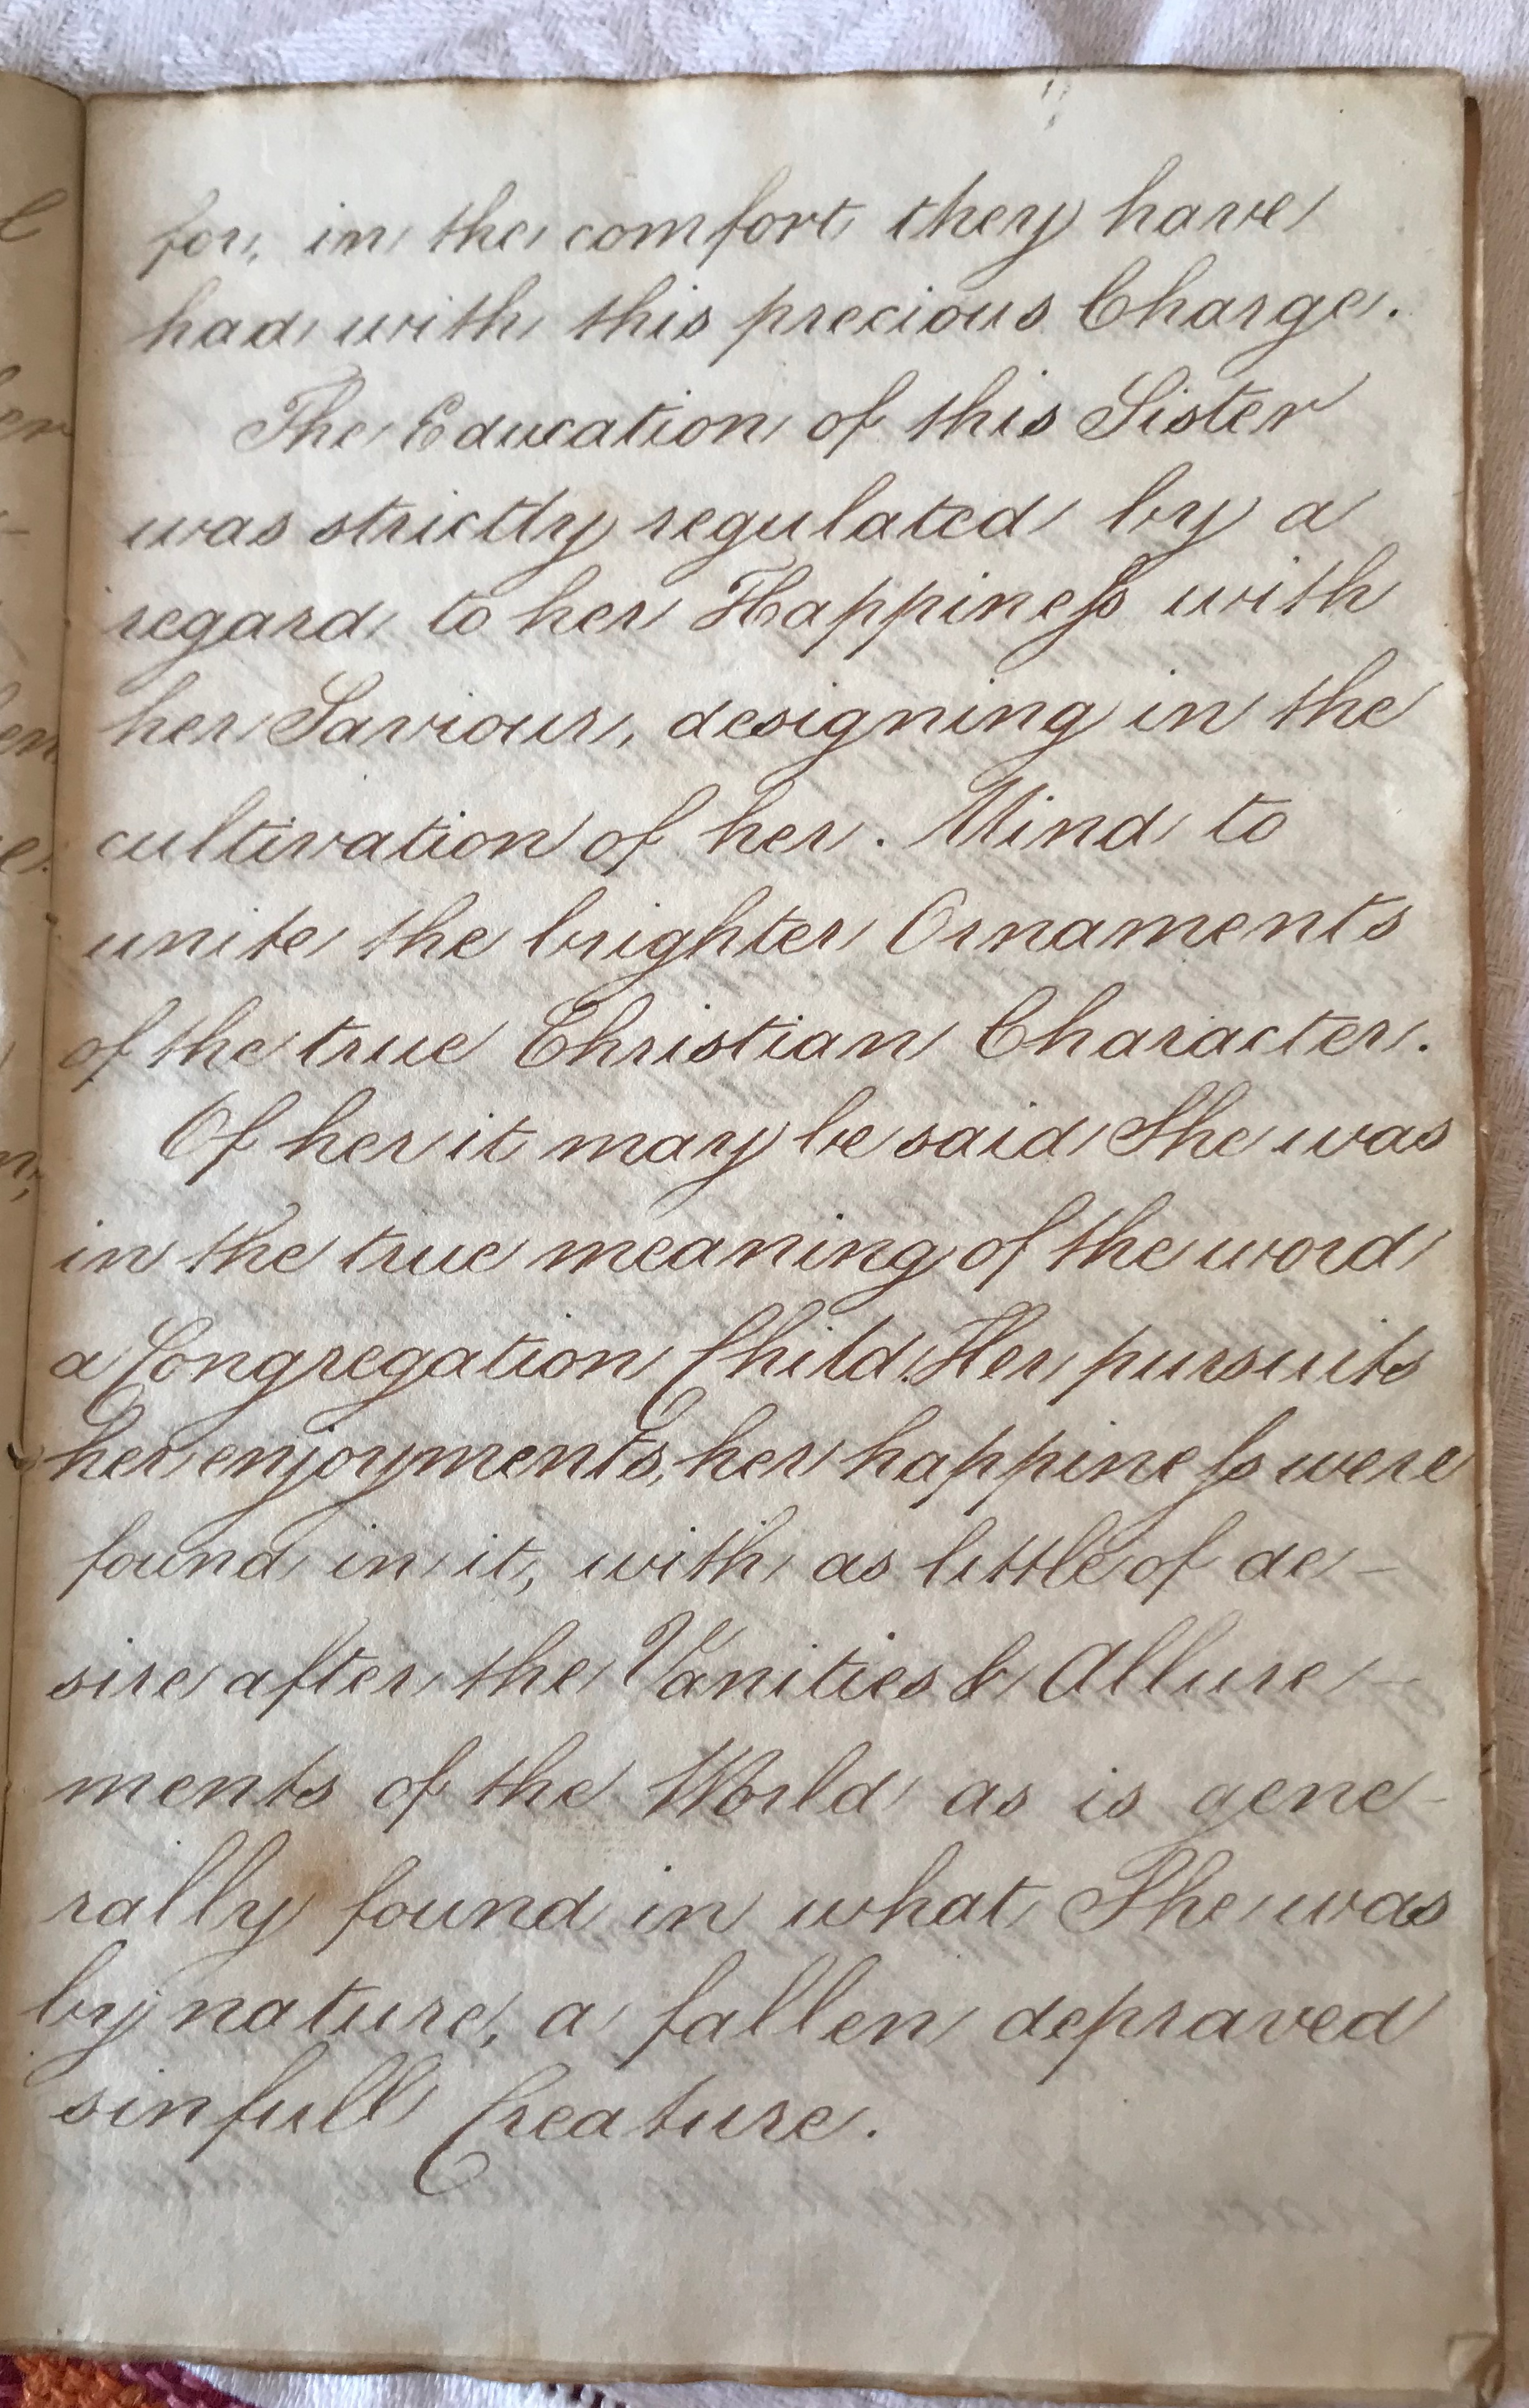 for, in the comfort they have
had with this precious Charge.
The Education of this Sister
was strictly regulated by a
regard to her Happineſs with
her Saviour, designing in the
cultivation of her. Mind to
unite the brighter Ornaments
of the true Christian Character.
Of her it may be said She was
in the true meaning of the word
a Congregation Child. Her pursuits
her enjoyments, her happineſs were
found in it, with as little of de-
sire after the Vanities & Allure-
ments of the World as is gene-
rally found in what She was
by nature, a fallen depraved
sinfull Creature.